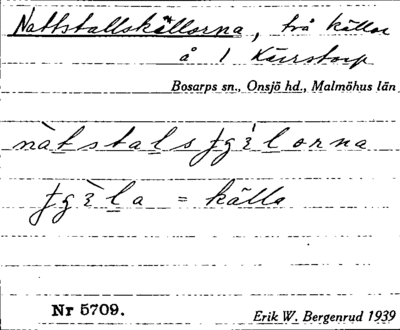 Nattstallskällorna, två källor
å 1 Kärrstorp
Bosarps sn., Onsjö hd., Malmöhus län
källa
Nr 5709.
Erik W. Bergenrud 1939